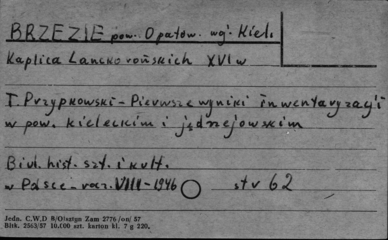 BRZEZIE pow. Opatów. wg. Kiel.
Kaplica Lanckorońskich XVI w
T. Przypkowski - Pierwsze wyniki inwentaryzacji
w pow. kieleckim i jędrzejowskim
Biul. hist. szt. i kult.
w Polsce. rocz. VIII-1946 str 62
Jedn. C.W.D R/Olsztyn Zam 2776 /on/ 57
Błtk. 2563/57 10.000 szt. karton kl. 7 g 220.